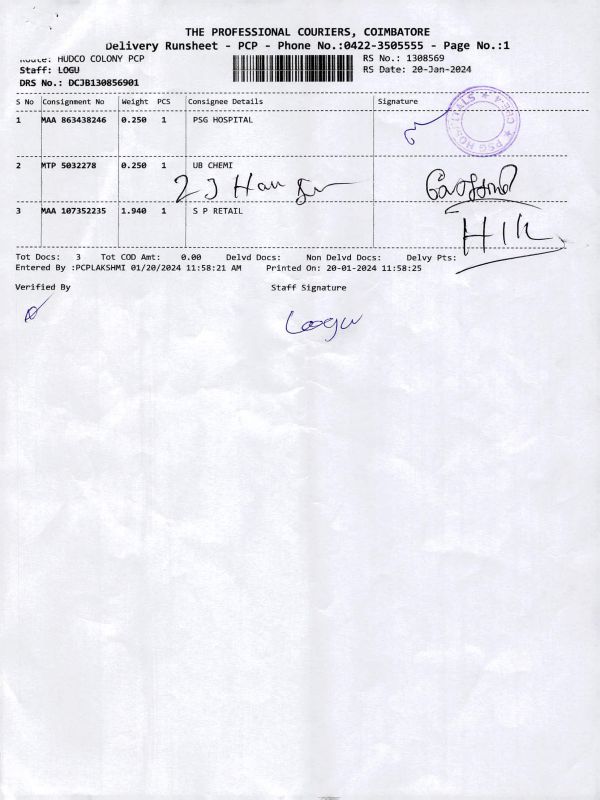 THE PROFESSIONAL COURIERS, COIMBATORE
Delivery Runsheet - PCP - Phone No.:0422-3505555 - Page No.:1
Route: HUDCO COLONY PCP
RS No.: 1308569
Staff: LOGU
RS Date: 20-Jan-2024
DRS No.: DCJB130856901
S No Consignment No Weight PCS Consignee Details Signature
1 MAA 863438246 0.250 1 PSG HOSPITAL
PSG HOSPITALS
2 MTP 5032278 0.250 1 UB CHEMI
3 MAA 107352235 1.940 1 S P RETAIL
Tot Docs: 3 Tot COD Amt: 0.00 Delvd Docs: Non Delvd Docs: Delvy Pts:
Entered By :PCPLAKSHMI 01/20/2024 11:58:21 AM Printed On: 20-01-2024 11:58:25
Verified By Staff Signature
Logu